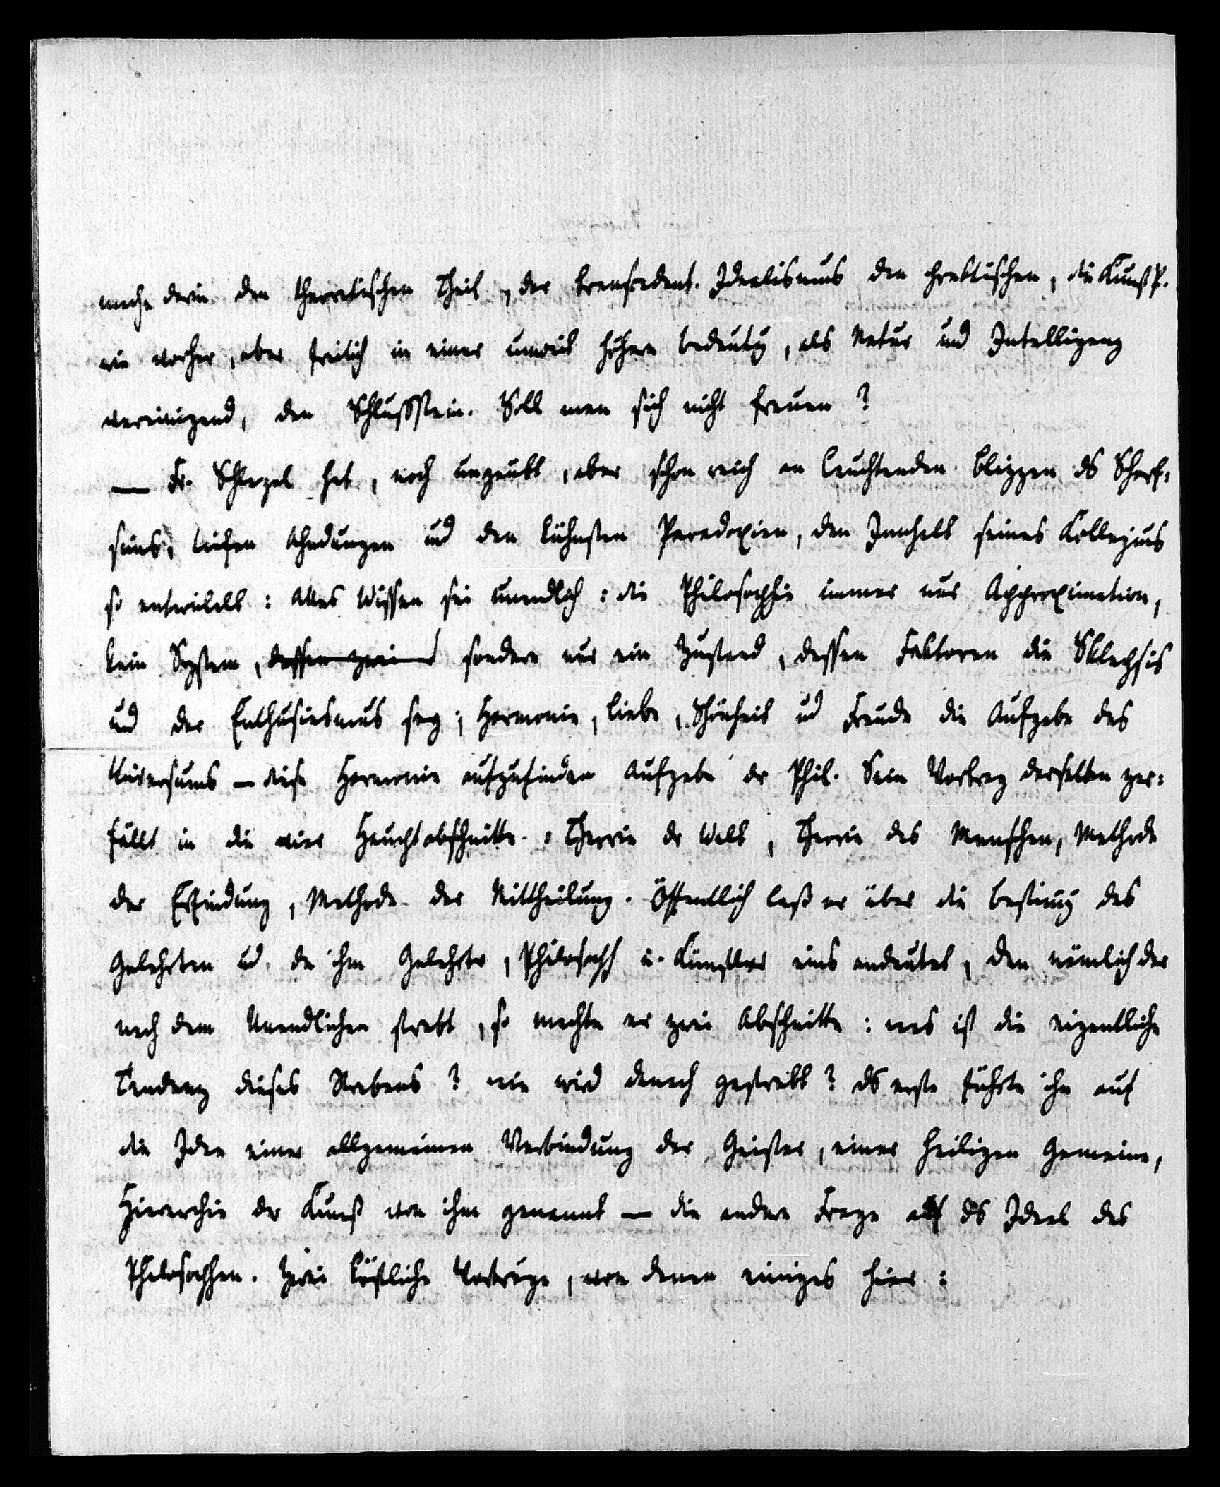 mache darin den theoretischen Theil, der transcendent. Idealismus den praktischen, die Kunstp.
wie vorher, aber freilich in einer umweis höhern bedeutg, als Natur und Intelligenz
vereinigend, den Schlußstein. Soll man sich nicht freuen?
— Fr. Schlegel hat, noch ungeübt, aber schon reich an leuchtenden Blizzen ds Scharf-
sins, tiefen Ahndungen und den kühnsten Paradoxien, den Innhalt seines Kollegiums
so entwikelt: Alles Wissen sei unendlich: die Philosophie immer nur Approximation,
kein System, dessen zwei sondern nur ein Zustand, dessen Faktoren die Sklepsis
und der Enthusiasmus sey; Harmonie, Liebe, Schönheit ud Freude die Aufgabe des
Universums — diese Harmonie aufzufinden Aufgabe dr Phil. Sein Vortrag derselben zer-
fällt in die vier Hauptabschnitte: Theorie dr Welt, Theorie des Menschen, Methode
der Erfindung, Methode der Mittheilung. Öffentlich laß er über die bestimg des
Gelehrten ud da ihm Gelehrter, Philosoph u. Künstler eins andeutet, den nämlich der
nach dem Unendlichen strebt, so machte er zwei Abschnitte: was ist die eigentliche
Tendenz dieses Strebens? wie wird danach gestrebt? ds erste führte ihn auf
die Idee einer allgemeinen Verbindung der Geister, einer heiligen Gemeine,
Hierarchie dr Kunst von ihm genannt — die andere Frage auf ds Ideal des
Philosophen. Zwei köstliche Vorträge, von denen einiges hier: